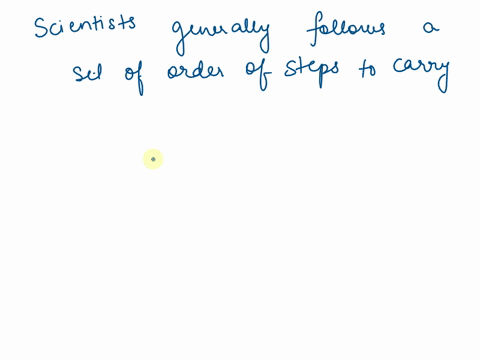 Scientists generally follows a
set of order of steps to carry